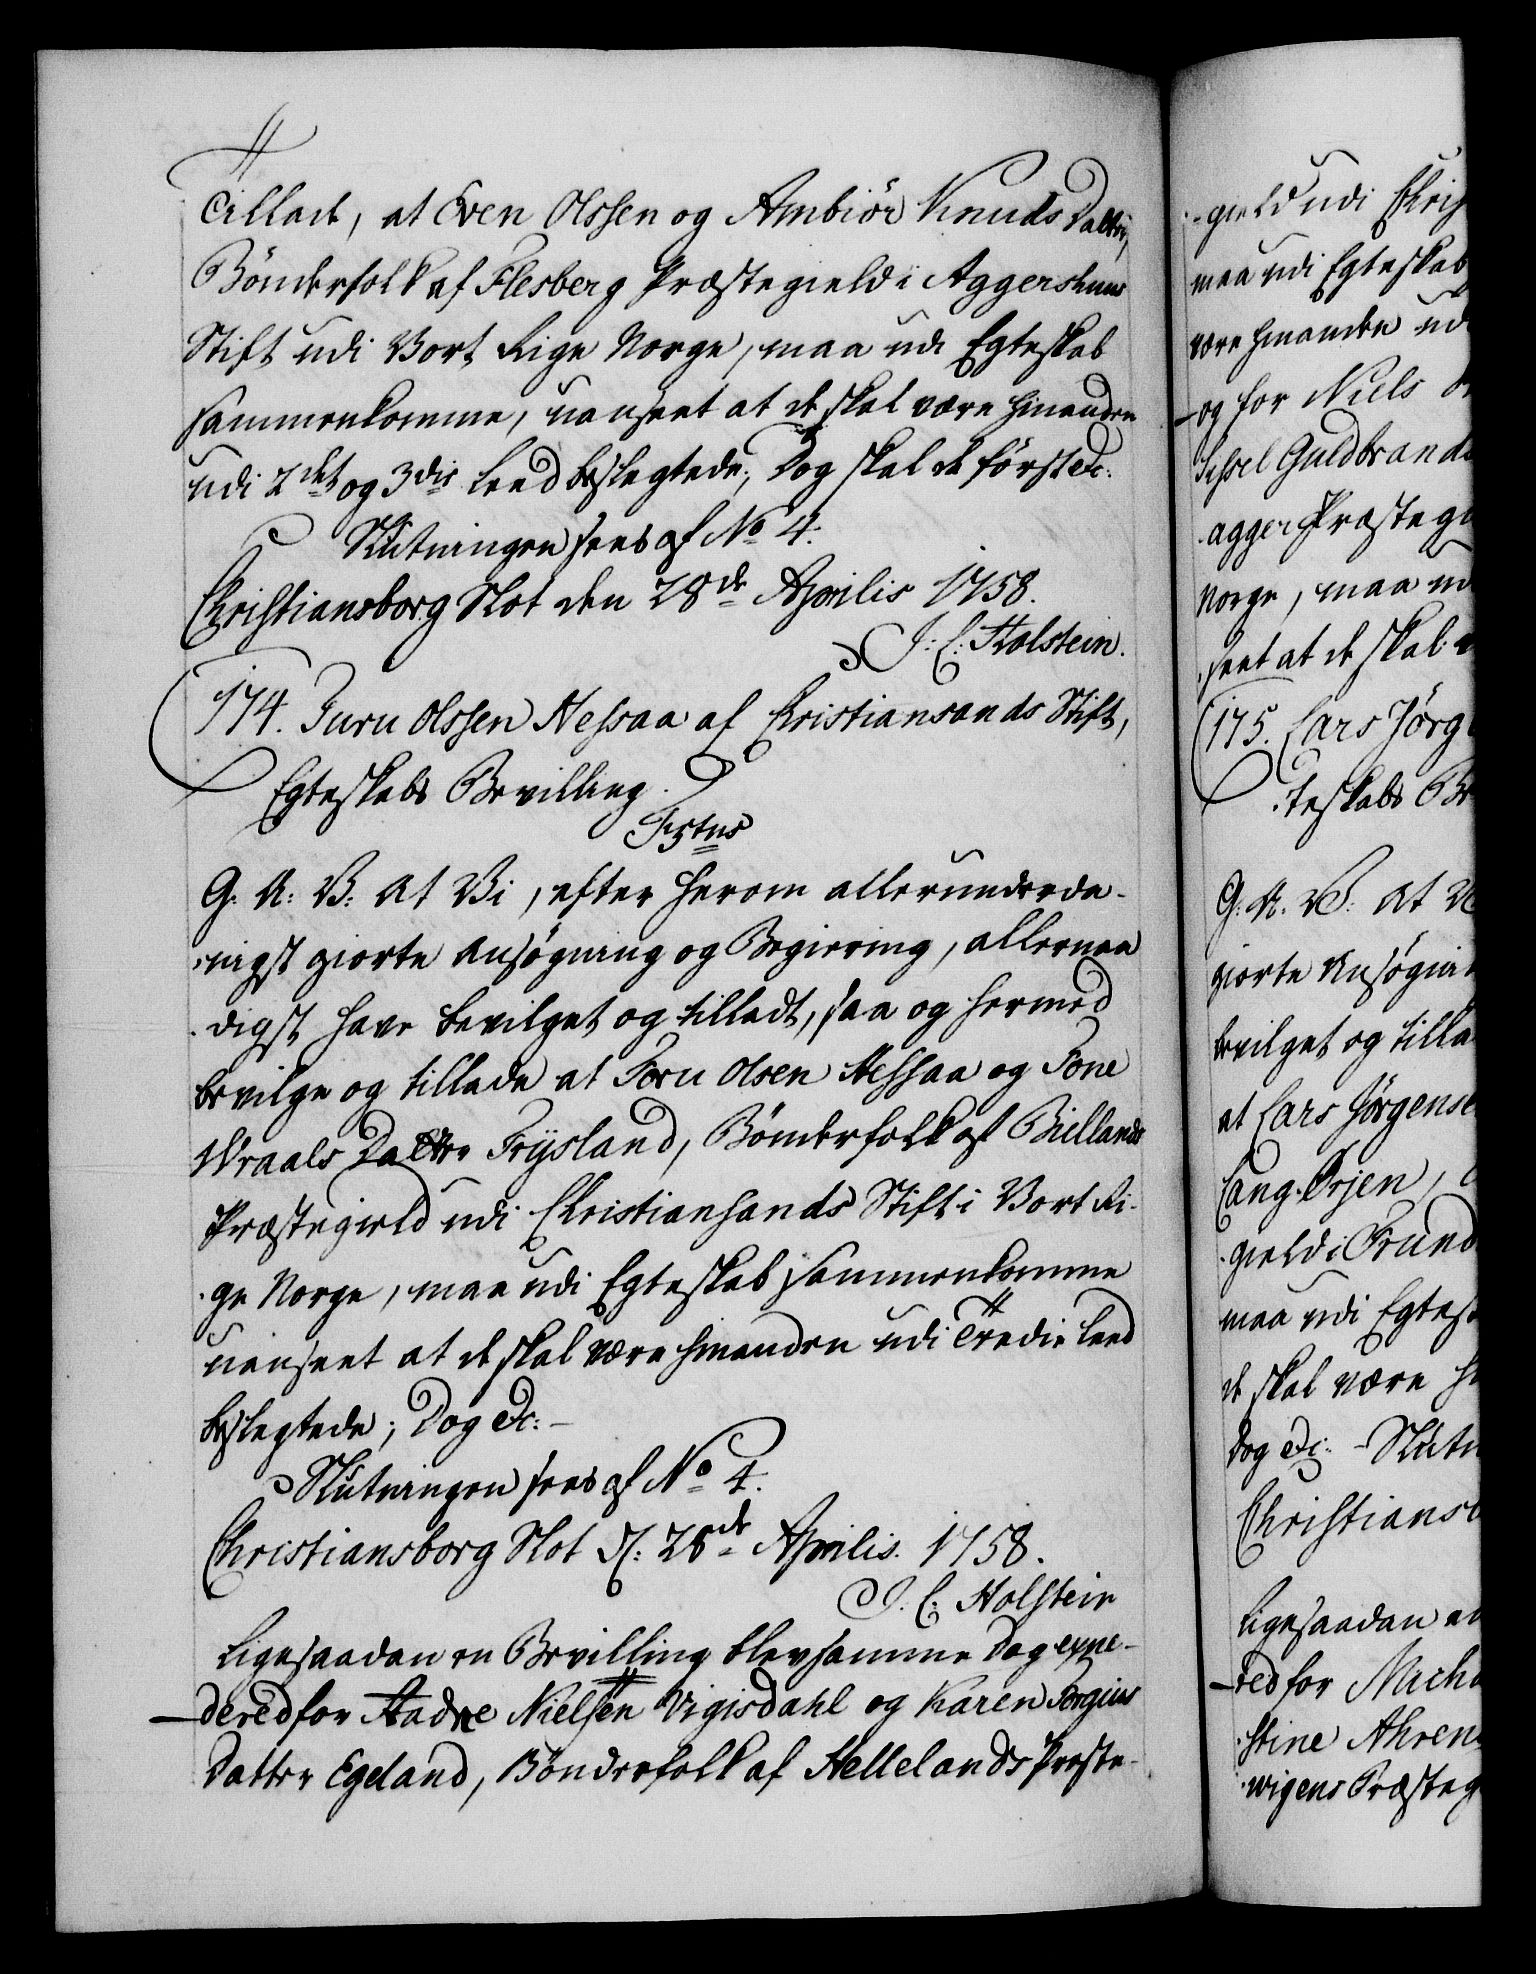 Tilladt, at Even Olssen og Ambiör Knuds Datter,
Bönderfolk af Flesberg Præstegield i Aggershuus
Stift udi Vort Rige Norge, maa udi Egteskab
sammenkomme, uanseet at de skal være hinanden
udi 2det og 3die Leed beslegtede; Dog skal de först etc:
Slutningen sees af No 4.
Christiansborg Slot den 28de Aprilis 1758.
J. L. Holstein.
174. Turu Olssen Nessaa af Christiansands Stift,
Egteskabs Bevilling.
F5tus
G. A: V: At Vi, efter herom allerunderda-
nigst giorte Ansögning og Begiering, allernaa
digst have bevilget og tilladt, saa og hermed
bevilge og tillade at Toru Olsen Nessaa og Tone
Wraals Datter Frÿsland, Bönderfolk af Biellands
Præstegield udi Christiansands Stift i Vort Ri-
ge Norge, maa udi Egteskab sammenkomme
uanseet at de skal være hinanden udi Tredie Leed
beslegtede; Dog etc: -
Slutningen sees af No 4.
Christiansborg Slot d: 28de Aprilis. 1758.
J. L. Holstein
Ligesaadan en Bevilling blev samme Dag expe-
dered for Aadne Nielsen Vigisdahl og Karen Torgius
Datter Egeland, Bönderfolk af Hellelands Præste-
gield udi Chris
maa udi Egteskab
være hinanden ud
og for Niels
Sissel Guldbrands
agger Præstegi
Norge, maa ud
seet at de skal
175. Lars Jörg
teskabs Be
G. A. V: At V
giorte Ansögni
bevilget og tilla
at Lars Jörgense
Lang-Örjen,
gield i Trund
maa udi Egtes
de skal være hi
Dog etc: - Slutn
Christiansb
Ligesaadan en
red for Micha
stine Ahren
wigens Præsteg